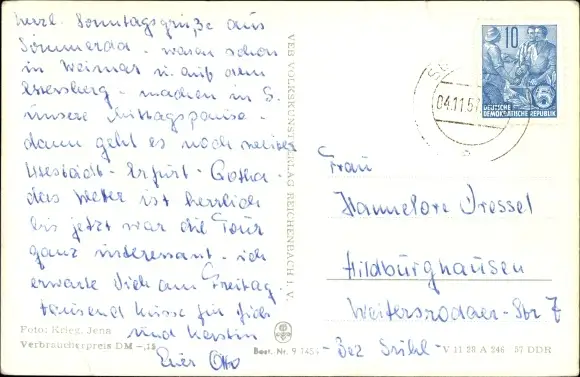 herzl. Sonntagsgrüße aus
Sömmerda - waren schon
in Weimar u. auf dem
Ettersberg - machen in S.
unsere Mittagspause -
dann geht es noch weiter
- Erfurt - Gotha -
das Wetter ist herrlich
bis jetzt war die Tour
ganz interessant - ich
erwarte Dich am Freitag
tausend Küsse für Dich
und Kerstin
Euer Otto
Foto: Krieg, Jena
Verbraucherpreis DM -,15
VEB VOLKSKUNSTVERLAG REICHENBACH I. V.
Best. Nr. 9
10
DEUTSCHE
DEMOKRATISCHE REPUBLIK
5
04.11.57
Frau
Hannelore Dressel
Hildburghausen
Weitersrodaer-Str 7
- Bez Suhl -
V 11 28 A 246 57 DDR